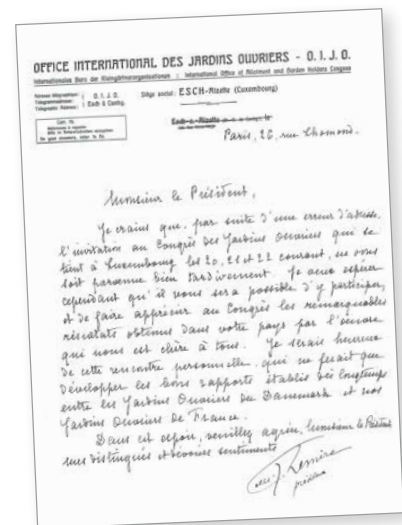 OFFICE INTERNATIONAL DES JARDINS OUVRIERS - O. I. J. O.
Internationales Büro der Kleingärtnerorganisationen : International Office of Allotment and Garden Holders Leagues
Adresse télégraphique :
Telegrammadresse : O. I. J. O.
Telegraphic Address : Esch s. Alzig.
Siège social : ESCH-Alzette (Luxembourg)
Paris, 26, rue Lhomond.
Monsieur le Président,
Je crains que, par suite d'une erreur d'adresse,
l'invitation au Congrès des Jardins Ouvriers qui se
tient à Luxembourg les 20, 21 et 22 courant, ne vous
soit parvenue bien tardivement. Je veux espérer
cependant qu'il vous sera possible d'y participer,
et de faire apprécier au Congrès les remarquables
résultats obtenus dans votre pays par l'œuvre
qui nous est chère à tous. Je serais heureux
de cette rencontre personnelle, qui ne ferait que
développer les bons rapports établis dès longtemps
entre les Jardins Ouvriers du Danemark et nos
Jardins Ouvriers de France.
Dans cet espoir, veuillez agréer, Monsieur le Président
mes distingués et dévoués sentiments
président